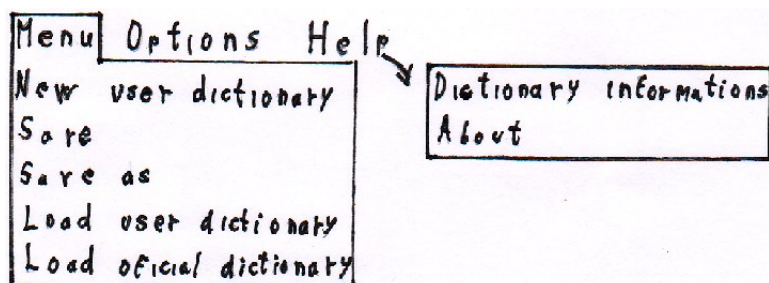 Menu Options Help
New user dictionary
Save
Save as
Load user dictionary
Load oficial dictionary
Dictionary informations
About